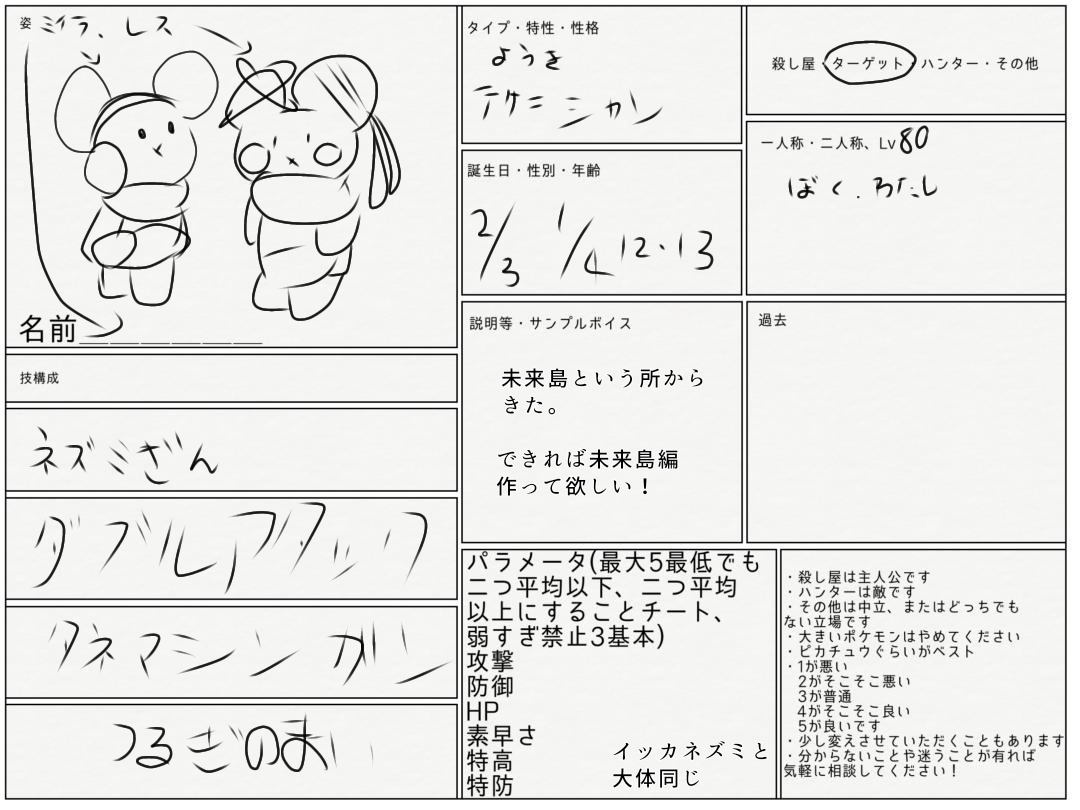 姿 ミイラ、レス
名前
技構成
ネズミざん
ダブルアタック
タネマシンガン
つるぎのまい
タイプ・特性・性格
ようき
テクニシャン
誕生日・性別・年齢
2/3 1/4 12・13
説明等・サンプルボイス
未来島という所から
きた。
できれば未来島編
作って欲しい！
殺し屋・ターゲット・ハンター・その他
一人称・二人称、Lv 80
ぼく.わたし
過去
パラメータ(最大5最低でも
二つ平均以下、二つ平均
以上にすることチート、
弱すぎ禁止3基本)
攻撃
防御
HP
素早さ
特高
特防
イッカネズミと
大体同じ
・殺し屋は主人公です
・ハンターは敵です
・その他は中立、またはどっちでも
ない立場です
・大きいポケモンはやめてください
・ピカチュウぐらいがベスト
・1が悪い
2がそこそこ悪い
3が普通
4がそこそこ良い
5が良いです
・少し変えさせていただくこともあります
・分からないことや迷うことが有れば
気軽に相談してください！